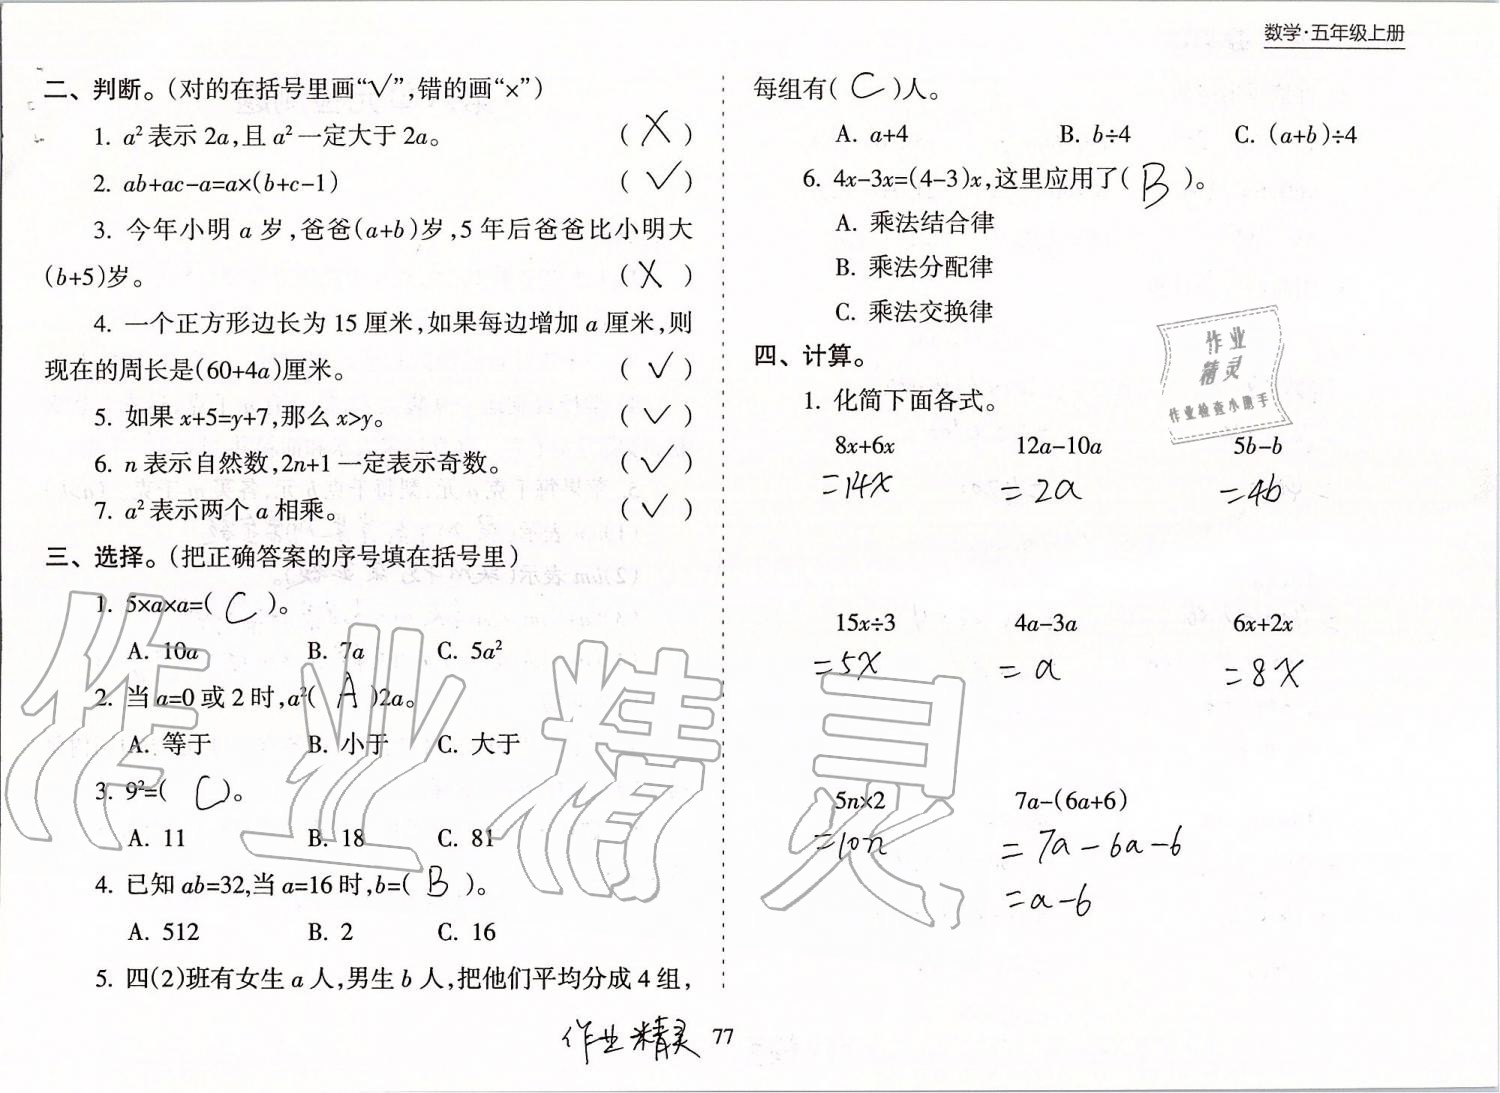 数学·五年级上册
二、判断。(对的在括号里画“√”,错的画“×”)
1. a²表示 2a,且 a²一定大于 2a。 ( X )
2. ab+ac-a=a×(b+c-1) ( √ )
3. 今年小明 a 岁,爸爸(a+b)岁,5 年后爸爸比小明大
(b+5)岁。 ( X )
4. 一个正方形边长为 15 厘米,如果每边增加 a 厘米,则
现在的周长是(60+4a)厘米。 ( √ )
5. 如果 x+5=y+7,那么 x>y。 ( √ )
6. n 表示自然数,2n+1 一定表示奇数。 ( √ )
7. a²表示两个 a 相乘。 ( √ )
三、选择。(把正确答案的序号填在括号里)
1. 5×a×a=( C )。
A. 10a B. 7a C. 5a²
2. 当 a=0 或 2 时,a²( A )2a。
A. 等于 B. 小于 C. 大于
3. 9²=( C )。
A. 11 B. 18 C. 81
4. 已知 ab=32,当 a=16 时,b=( B )。
A. 512 B. 2 C. 16
5. 四(2)班有女生 a 人,男生 b 人,把他们平均分成 4 组,
每组有( C )人。
A. a+4 B. b÷4 C. (a+b)÷4
6. 4x-3x=(4-3)x,这里应用了( B )。
A. 乘法结合律
B. 乘法分配律
C. 乘法交换律
四、计算。
1. 化简下面各式。
8x+6x 12a-10a 5b-b
=14x =2a =4b
15x÷3 4a-3a 6x+2x
=5x =a =8x
5n×2 7a-(6a+6)
=10n =7a-6a-6
=a-6
作业
精灵
作业检查小助手
作业精灵
作业精灵 77